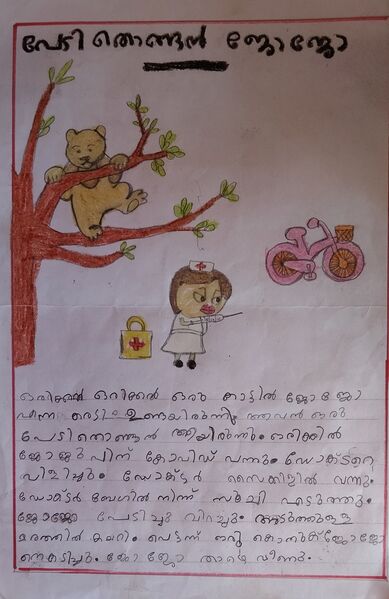 പേടിതൊണ്ടൻ ജോജോ
ഒരിക്കൽ ഒരിക്കൽ ഒരു കാട്ടിൽ ജോജോ
എന്ന കരടി ഉണ്ടായിരുന്നു. അവൻ ഒരു
പേടിതൊണ്ടൻ ആയിരുന്നു. ഒരിക്കൽ
ജോജുവിന് കോവിഡ് വന്നു. ഡോക്ടറെ
വിളിച്ചു. ഡോക്ടർ സൈക്കിളിൽ വന്നു.
ഡോക്ടർ ബേഗിൽ നിന്ന് സൂചി എടുത്തു.
ജോജോ പേടിച്ചു വിറച്ചു. അടുത്തുള്ള
മരത്തിൽ കയറി. പെട്ടന്ന് ഒരു കൊതുക് ജോജോ
നെ കടിച്ചു. ജോജോ താഴെ വീണു.